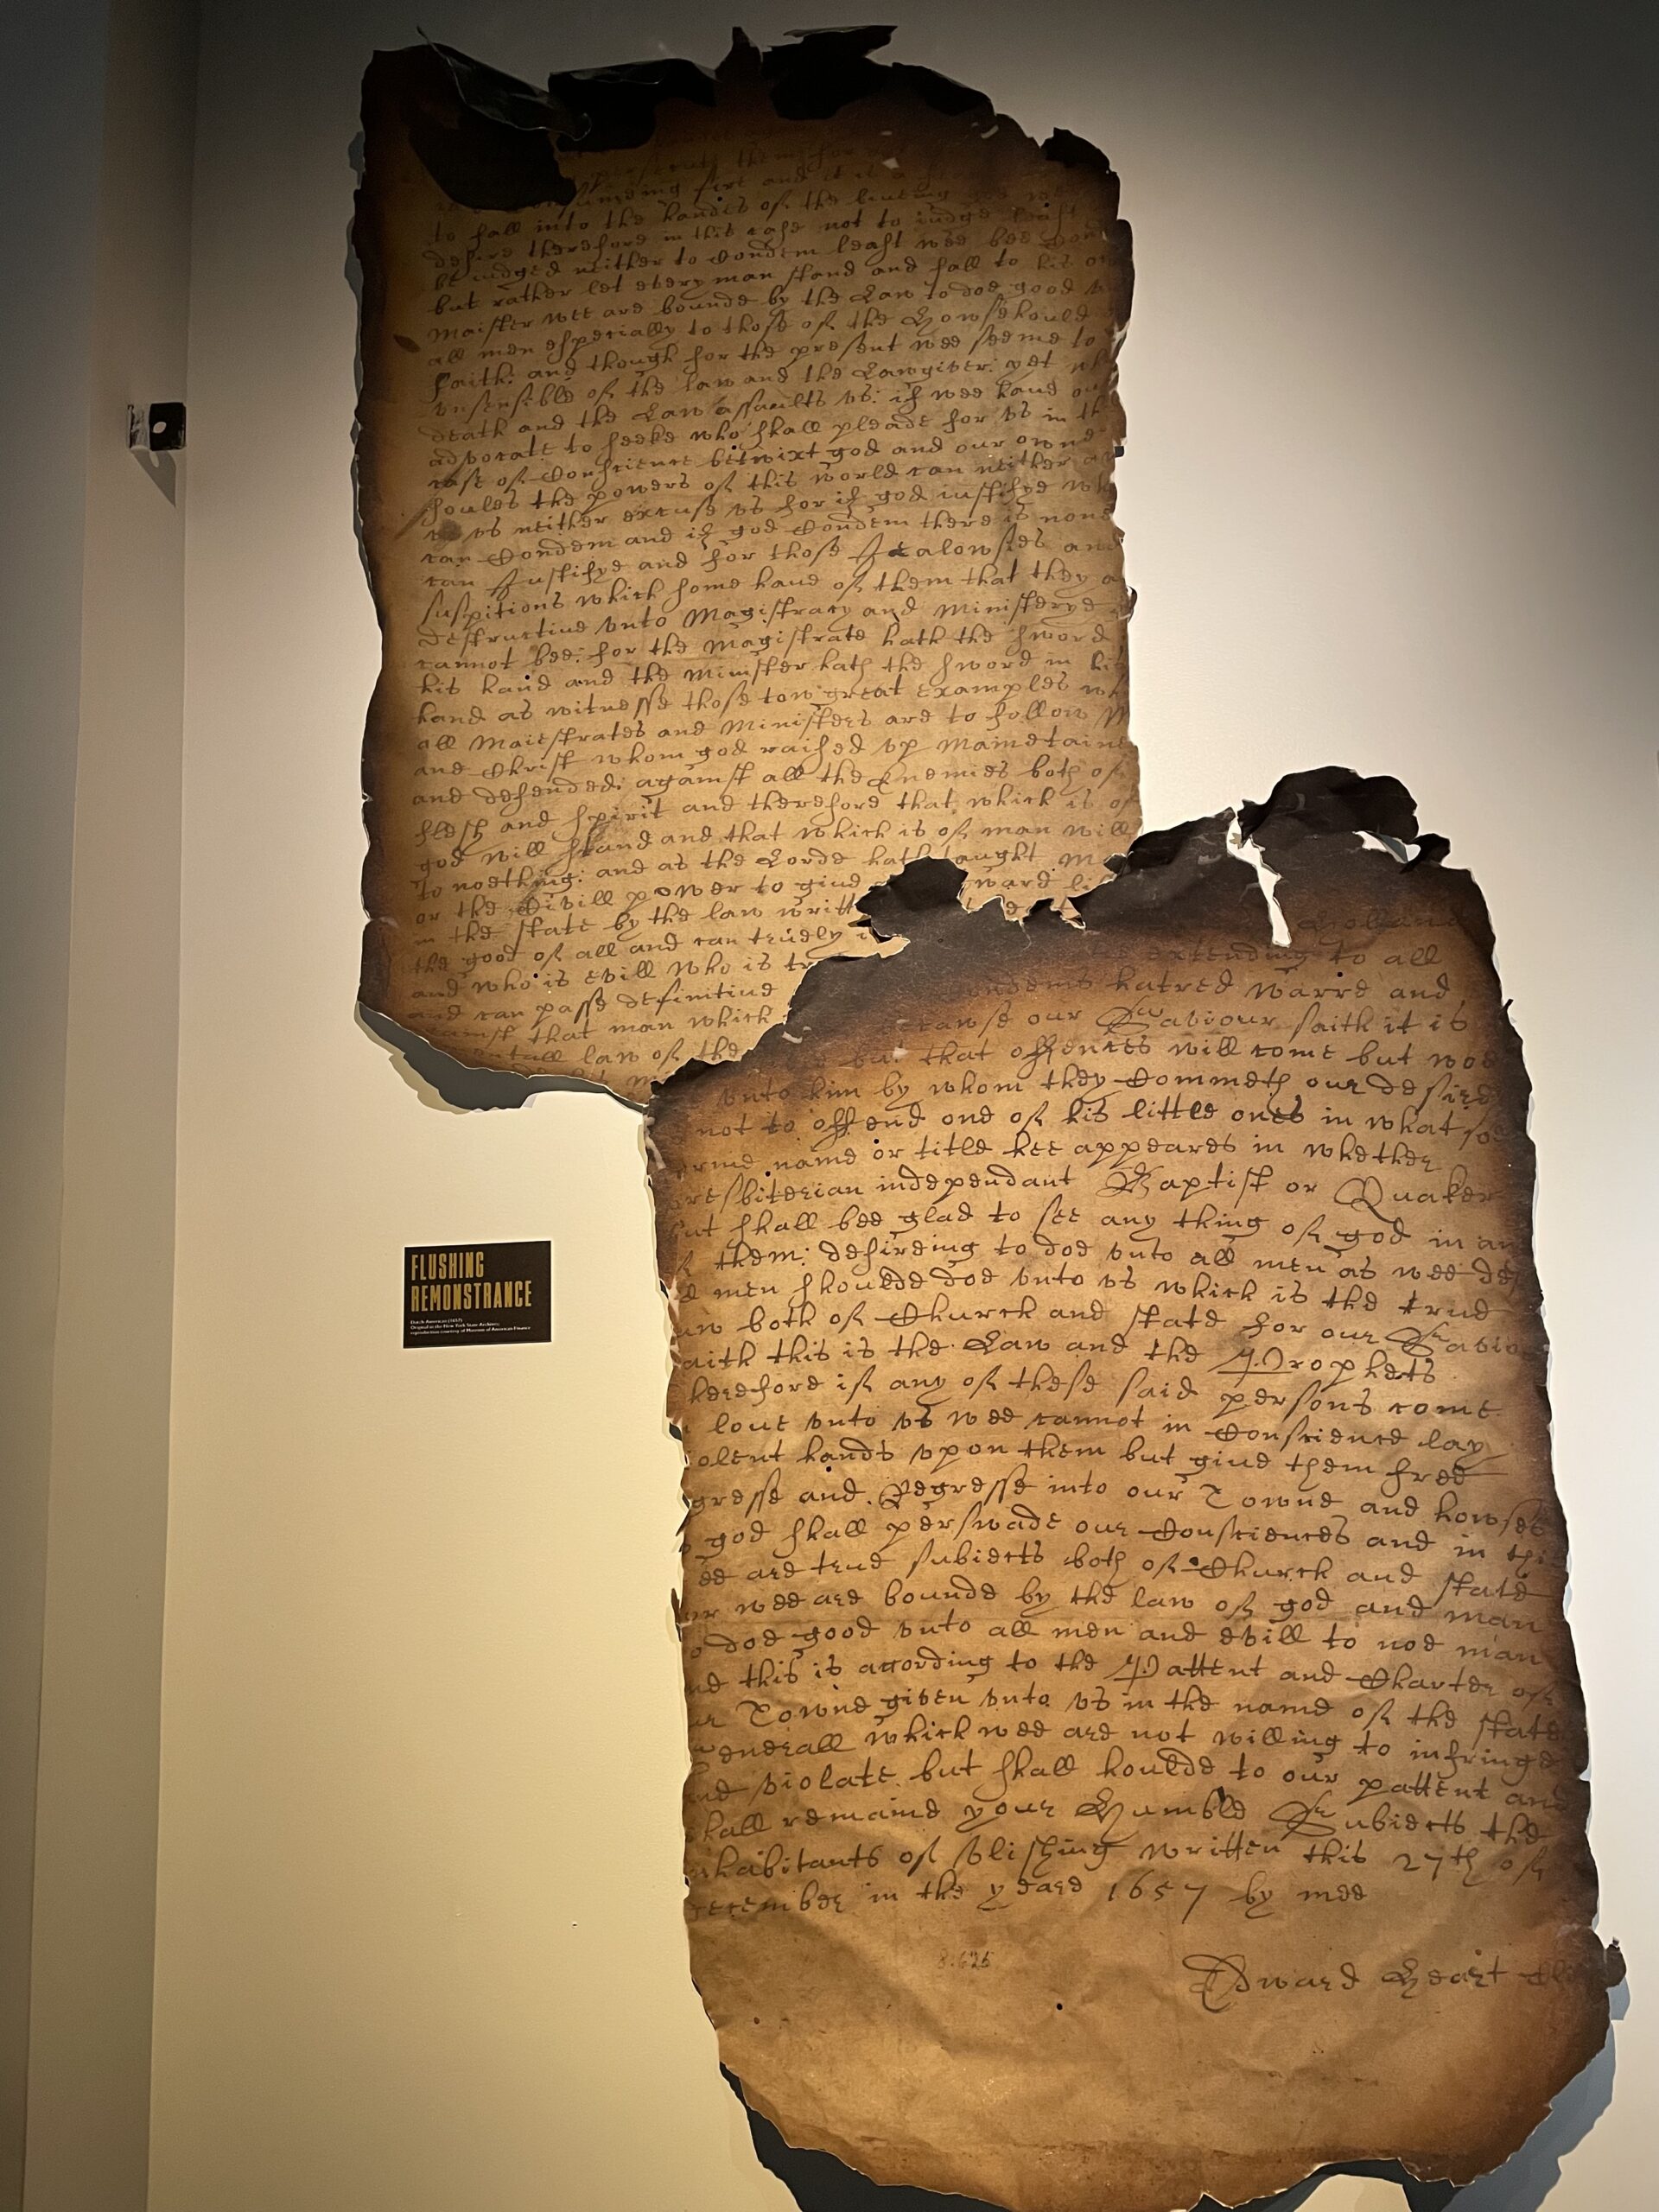 to fall into the handes of the liveing
desire therefore in this case not to iudge least
be iudged neither to Condem least wee bee
but rather let every man stand and fall to his
Maister wee are bounde by the Law to doe good
all men espetially to those of the Howsehould
faith: and though for the present wee seeme to
vnsensible of the law and the Lawgiver: yet
death and the Law assaults vs: if wee haue
advocate to seeke who shall pleade for vs in
case of Conscience betwixt god and our owne
soules the powers of this world can neither
vs neither excuse vs for if god iustifye
can Condem and if god Condem there is none
can Justifye and for those Jealowsies and
suspitions which some haue of them that they
destructiue vnto Magistracy and Ministerye
cannot bee: for the Magistrate hath the sword
his hand and the Minister hath the sword in
hand as witnesse those tow great examples
all Maiestrates and Ministers are to follow
and Christ whom god raised vp Maintained
and defended: against all the Enemies both of
flesh and spirit and therefore that which is of
god will stand and that which is of man will
to noething: and as the Lorde hath taught
or the Civill power to giue ward
in the state by the law
the good of all and can truely
and who is evill who is
and can passe definitiue
that man which
law of the
extending to all
hatred warre and
our Saviour saith it is
but that offences will come but
vnto him by whom they Commeth our desire
not to offend one of his little ones in what
name or title hee appeares in whether
independant Baptist or Quaker
shall bee glad to see any thing of god in
them: desireing to doe vnto all men as wee
men shoulde doe vnto vs which is the true
both of Church and state for our
this is the Law and the Prophets
if any of these said persons come
loue vnto vs wee cannot in Conscience lay
hands vpon them but giue them free
and Regresse into our Towne and howses
god shall perswade our Consciences and in
are true subiects both of Church and state
wee are bounde by the law of god and man
doe good vnto all men and evill to noe man
this is acording to the Pattent and Charter of
Towne given vnto vs in the name of the state
which wee are not willing to infringe
violate but shall houlde to our pattent and
remaine your Humble Subiects the
of Vlishing written this 27th of
in the yeare 1657 by mee
Edward Heart
FLUSHING
REMONSTRANCE
Dutch-American (1657)
Original in the New York State Archives;
reproduction courtesy of Museum of American Finance